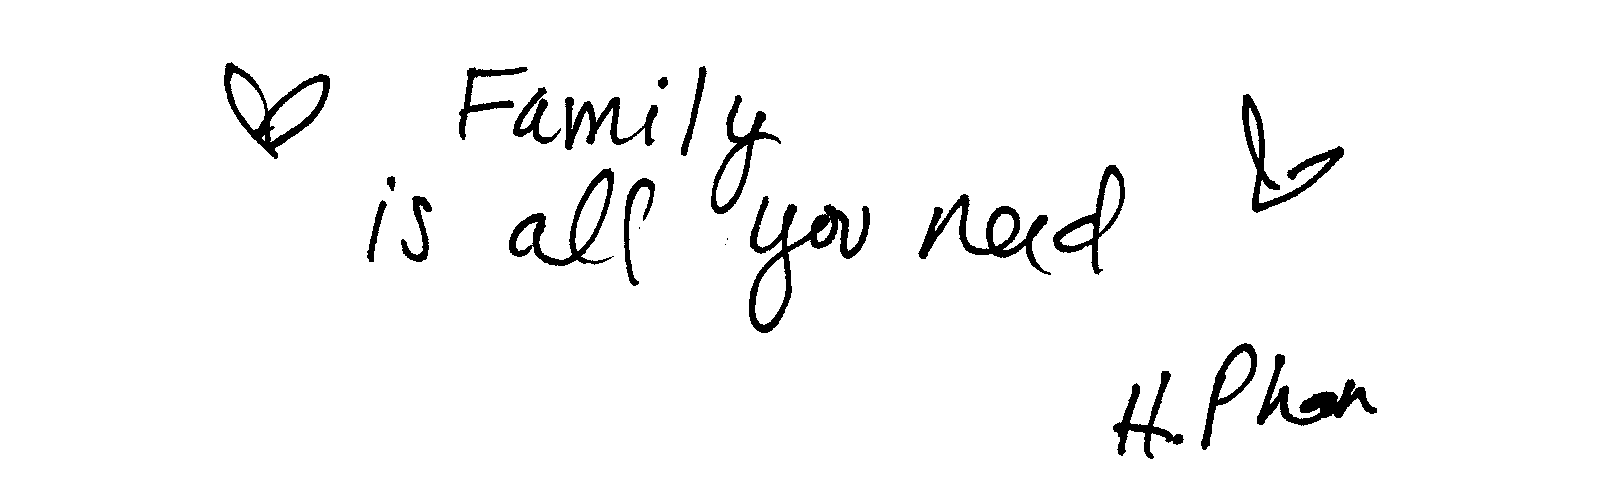 Family
is all you need
H. Phan